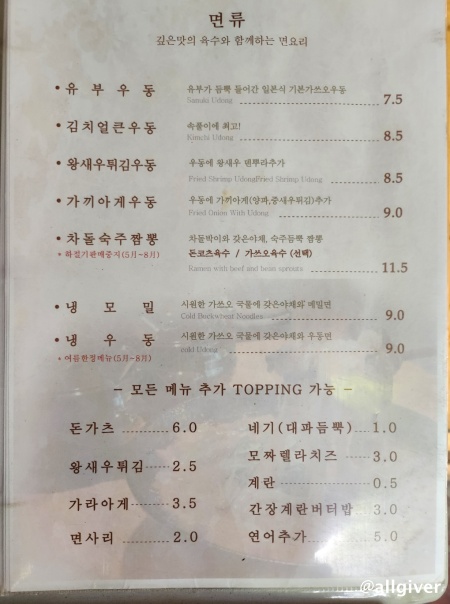 면류
깊은맛의 육수와 함께하는 면요리
• 유부우동 유부가 듬뿍 들어간 일본식 기본가쓰오우동
Sanuki Udong 7.5
• 김치얼큰우동 속풀이에 최고!
Kimchi Udong 8.5
• 왕새우튀김우동 우동에 왕새우 덴뿌라추가
Fried Shrimp UdongFried Shrimp Udong 8.5
• 가끼아게우동 우동에 가끼아게(양파,중새우튀김)추가
Fried Onion With Udong 9.0
• 차돌숙주짬뽕 차돌박이와 갖은야채, 숙주듬뿍 짬뽕
* 하절기판매중지(5月~8月) 돈코츠육수 / 가쓰오육수 (선택)
Ramen with beef and bean sprouts 11.5
• 냉모밀 시원한 가쓰오 국물에 갖은야채와 메밀면
Cold Buckwheat Noodles 9.0
• 냉우동 시원한 가쓰오 국물에 갖은야채와 우동면
* 여름한정메뉴(5月~8月) cold Udong 9.0
– 모든 메뉴 추가 TOPPING 가능 –
돈가츠 6.0 네기(대파듬뿍) 1.0
왕새우튀김 2.5 모짜렐라치즈 3.0
가라아게 3.5 계란 0.5
면사리 2.0 간장계란버터밥 3.0
연어추가 5.0
@allgiver